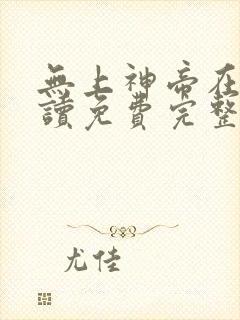 無上神帝在
讀免費完整
尤佳